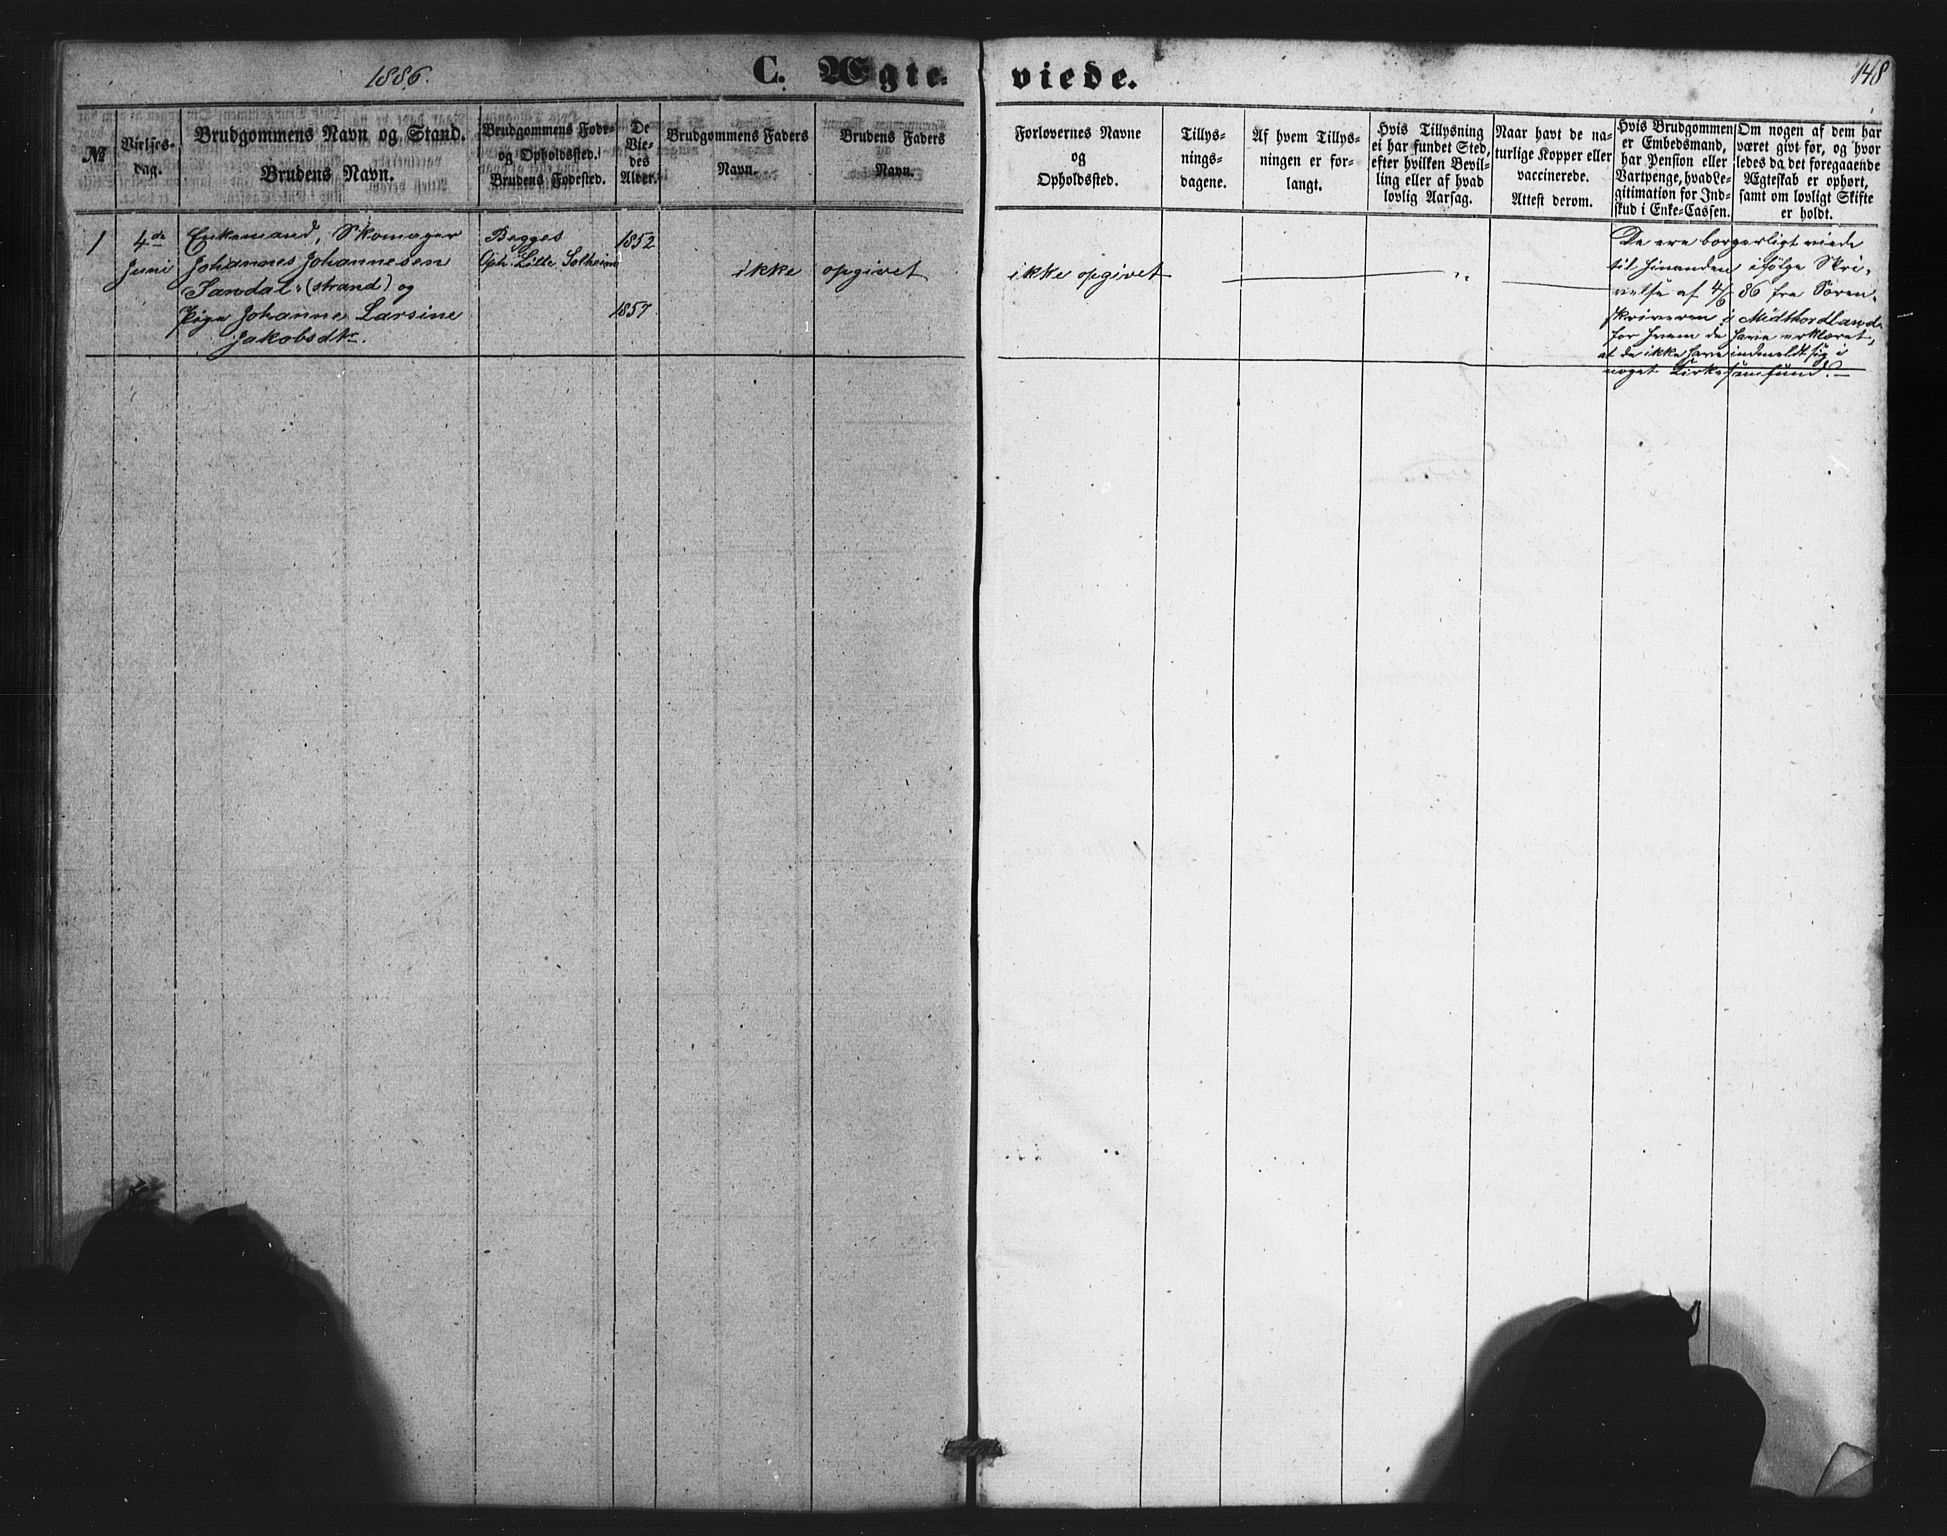 1886.
C. Ægte-
viede.
148
№
Vielses-
dag.
Brudgommens Navn og Stand.
Brudens Navn.
Brudgommens Føde-
og Opholdssted.
Brudens Fødested.
De
Vie-
des
Alder.
Brudgommens Faders
Navn.
Brudens Faders
Navn.
Forlovernes Navne
og
Opholdssted.
Tillys-
nings-
dagene.
Af hvem Tillys-
ningen er for-
langt.
Hvis Tillysning
ei har fundet Sted,
efter hvilken Bevil-
ling eller af hvad
lovlig Aarsag.
Naar havt de na-
turlige Kopper eller
vaccinerede.
Attest derom.
Hvis Brudgommen
er Embedsmand,
har Pension eller
Vartpenge, hvad Le-
gitimation for Ind-
skud i Enke-Cassen.
Om nogen af dem har
været givt før, og hvor
ledes da det foregaaende
Ægteskab er ophørt,
samt om lovligt Skifte
er holdt.
1
4de
Juni
Enkemand, Skomager
Johannes Johannesen
Sandal (strand) og
Pige Johanne Larsine
Jakobsdtr.
Begges
Oph: Lille Solheim
1852
1857
ikke opgivet
ikke opgivet
De ere borgerligt viede
til hinanden ifølge Skri-
velse af 4/6 86 fra Soren-
skriveren i Midthordland,
for hvem de have erklæret,
at de ikke have indmeldt sig i
noget Kirkesamfund.